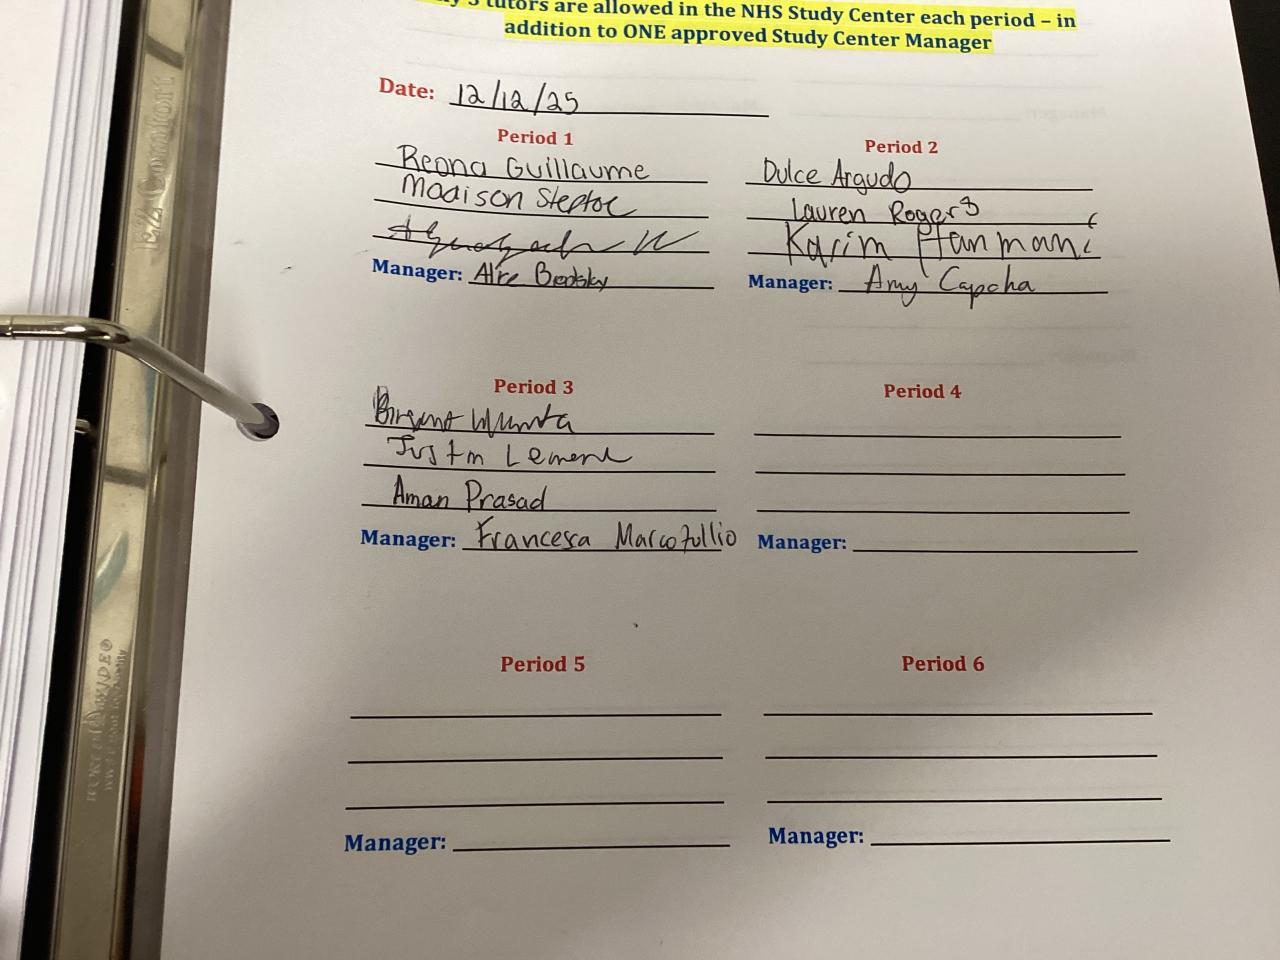 3 tutors are allowed in the NHS Study Center each period – in
addition to ONE approved Study Center Manager
Date: 12/12/25
Period 1
Reona Guillaume
Madison Steptoe
Manager: Alice
Period 2
Dulce Argudo
Lauren Rogers
Karim
Manager: Amy Capcha
Period 3
Justin
Aman Prasad
Manager: Francesca Marcotullio
Period 4
Manager:
Period 5
Manager:
Period 6
Manager: